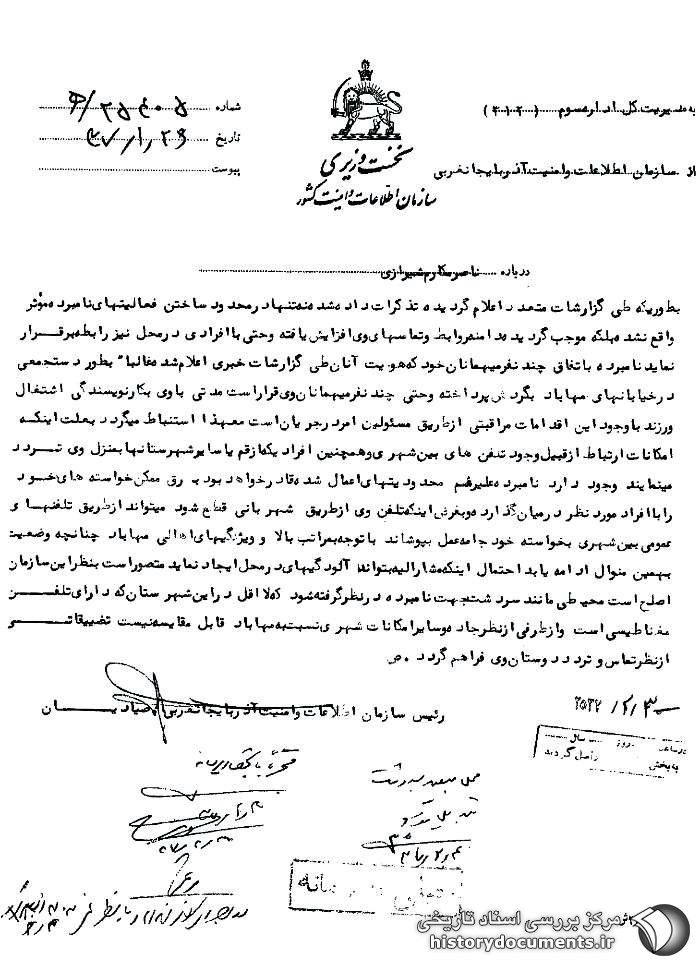 به مدیریت کل اداره سوم (۳۱۲)
شماره
از سازمان اطلاعات و امنیت آذربایجانغربی
تاریخ
پیوست
نخست وزیری
سازمان اطلاعات و امنیت کشور
درباره ناصر مکارم شیرازی
بطوریکه طی گزارشات متعدد اعلام گردیده تذکرات داده شده نه تنها در محدود ساختن فعالیتهای نامبرده مؤثر
واقع نشده بلکه موجب گردیده دامنه روابط و تماسهای وی افزایش یافته و حتی با افرادی در محل نیز رابطه برقرار
نماید نامبرده باتفاق چند نفر میهمانان خود که هویت آنان طی گزارشات خبری اعلام شده غالباً بطور دستجمعی
در خیابانهای مهاباد بگردش پرداخته و حتی چند نفر میهمانان وی قرار است مدتی با وی بکار نویسندگی اشتغال
ورزند با وجود این اقدامات مراقبتی از طریق مسئولین امر در جریان است معهذا استنباط میگردد بعلت اینکه
امکانات ارتباط از قبیل وجود تلفن های بین شهری و همچنین افرادیکه از قم یا سایر شهرستانها بمنزل وی تردد
مینمایند وجود دارد نامبرده علیرغم محدودیتهای اعمال شده قادر خواهد بود به رق ممکن خواسته های خود
را با افراد مورد نظر در میان گذارد و بفرض اینکه تلفن وی از طریق شهربانی قطع شود میتواند از طریق تلفنهای
عمومی بین شهری بخواسته خود جامه عمل بپوشاند با توجه بمراتب بالا و ویژگیهای اهالی مهاباد چنانچه وضعیت
بهمین منوال ادامه یابد احتمال اینکه مشارالیه بتواند آلودگیهای در محل ایجاد نماید متصور است بنظر این سازمان
اصلح است محیطی مانند سردشت جهت نامبرده در نظر گرفته شود که لااقل در این شهرستان که دارای تلفن
مغناطیسی است و از طرفی از نظر جاده و سایر امکانات شهری نسبت به مهاباد قابل مقایسه نیست تضییقاتی
از نظر تماس و تردد دوستان وی فراهم گردد. ص
رئیس سازمان اطلاعات و امنیت آذربایجانغربی صیادیان
در ساعت روز سال
به بخش واصل گردید
مرکز بررسی اسناد تاریخی
historydocuments.ir